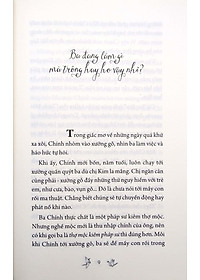 Ba đang làm gì
mà trông hay ho vậy nhỉ?
Trong giấc mơ về những ngày quá khứ
xa xôi, Chính nhòm vào xưởng gỗ, nhìn ba làm việc và
háo hức tự hỏi.
Khi ấy, Chính mới bốn, năm tuổi, luôn chạy tới
xưởng quấn quýt ba dù chị Kim la mắng. Chị ngăn cản
cũng phải - xưởng gỗ đầy những thứ nguy hiểm với trẻ
em, như cưa, bào, vụn gỗ... Đó là chưa nói tới máy cối
rối ma thuật. Chẳng biết chúng sẽ tự chuyển động hay
phát nổ khi nào.
Ba Chính thực chất là một pháp sư kiêm thợ mộc.
Nhưng nghề mộc mới là thu nhập chính của ông, nên
có khi gọi ba là thợ mộc kiêm pháp sư thì đúng hơn. Mỗi
khi Chính tới xưởng gỗ, ba sẽ để máy con rối trong
9